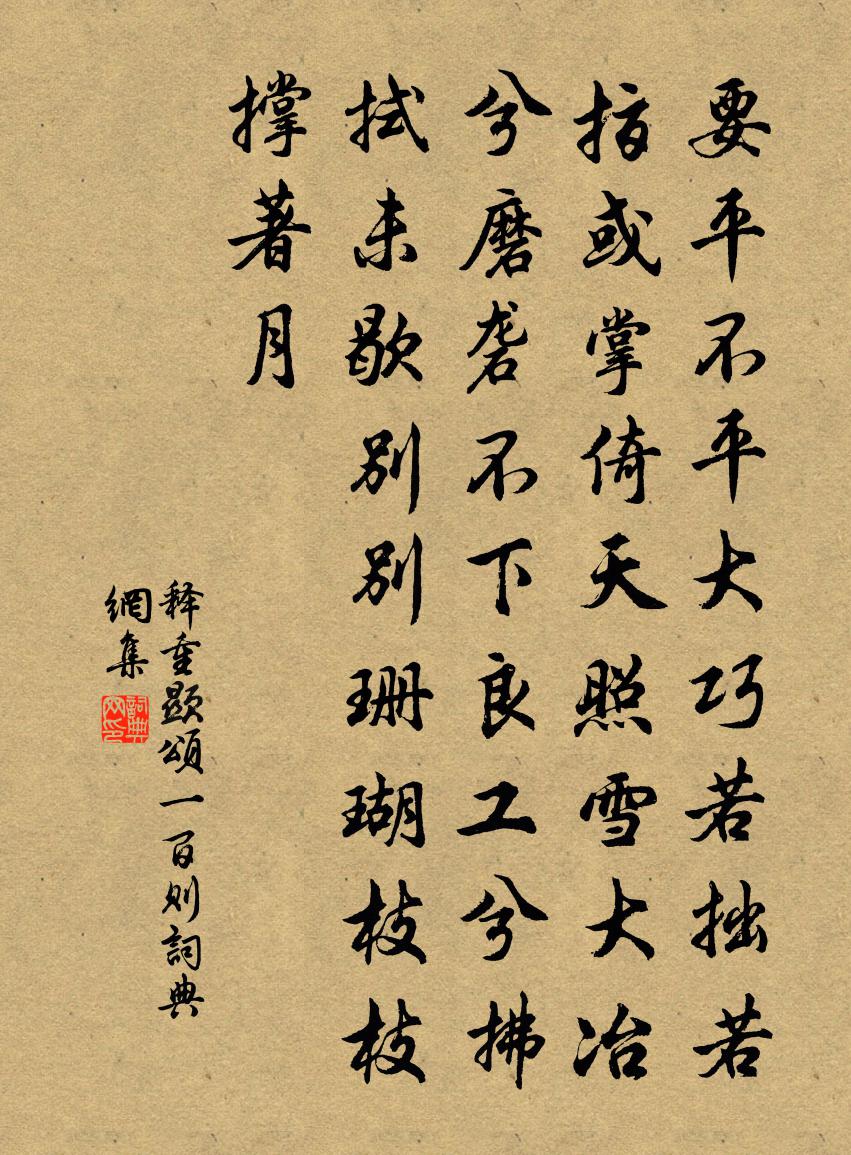 要平不平大巧若拙若
指或掌倚天照雪大冶
兮磨砻不下良工兮拂
拭未歇别别珊瑚枝枝
撑著月
释重显颂一百则詞典
網集
詞典
网印